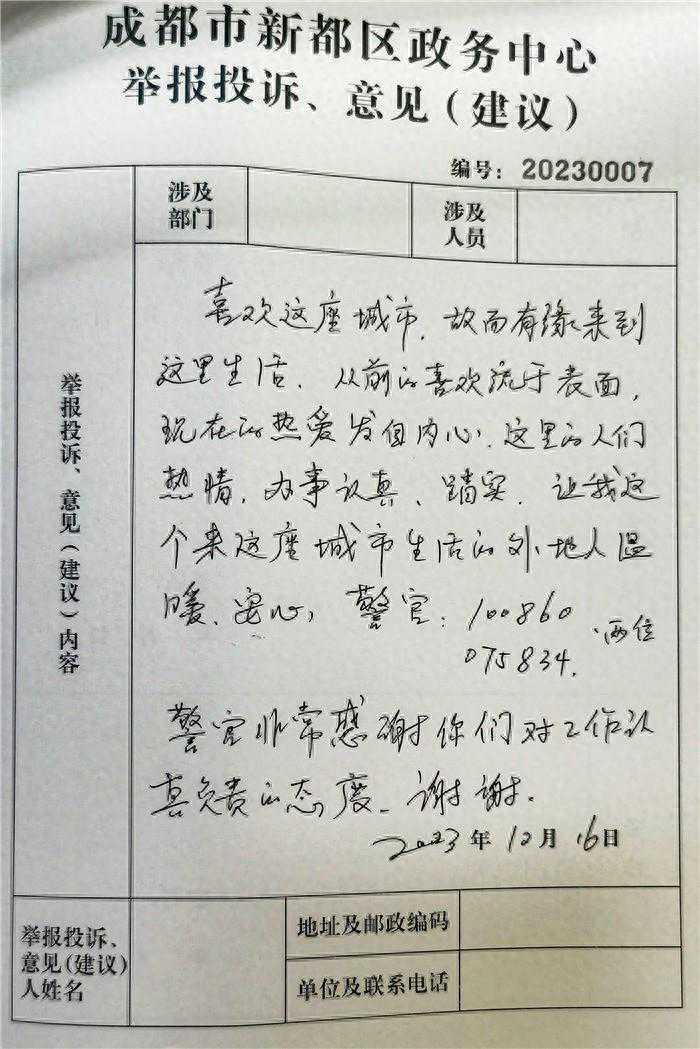 成都市新都区政务中心
举报投诉、意见（建议）
编号：20230007
涉及
部门
涉及
人员
举报投诉、意见（建议）内容
喜欢这座城市，故而有缘来到
这里生活，从前的喜欢流于表面，
现在的热爱发自内心，这里的人们
热情，办事认真、踏实，让我这
个来这座城市生活的外地人温
暖、安心，警官：100860
075834、两位
警官非常感谢你们对工作认
真负责的态度。谢谢。
2023年12月16日
举报投诉、
意见（建议）
人姓名
地址及邮政编码
单位及联系电话